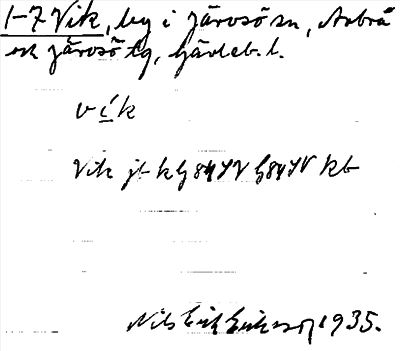 1-7 Vik, by i Järvsö sn, Arbrå
och Järvsö tg, Gävleb. l.
vík
Vik jb kG 84 SV G 84 SV kb
Nils Erik Eriksson 1935.